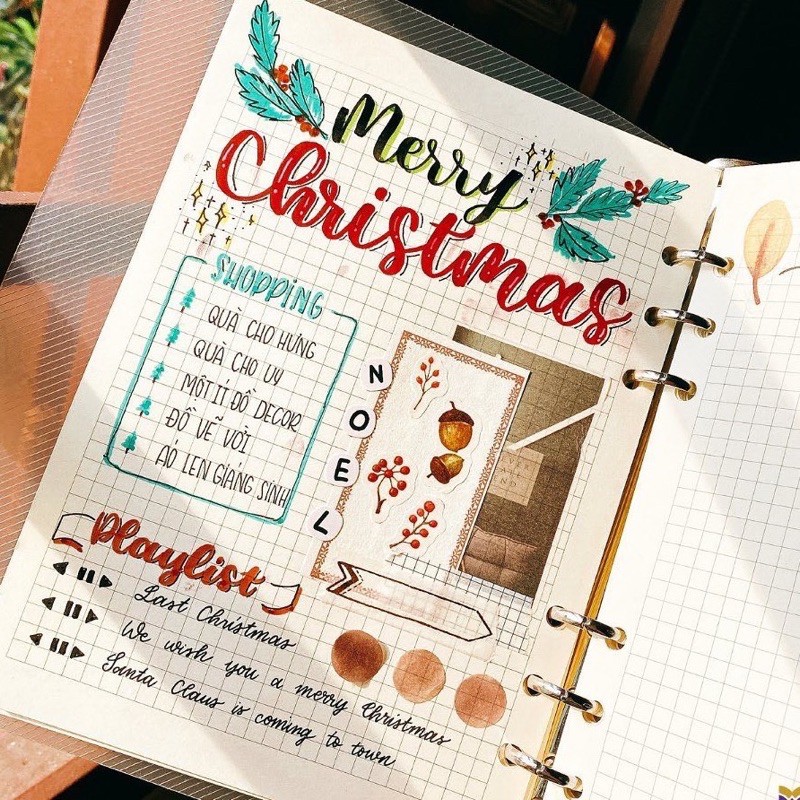 Merry
Christmas
SHOPPING
QUÀ CHO HƯNG
QUÀ CHO UY
MỘT ÍT ĐỒ DECOR
ĐỒ VẼ VỜI
ÁO LEN GIÁNG SINH
N
O
E
L
Playlist
Last Christmas
We wish you a merry Christmas
Santa Claus is coming to town